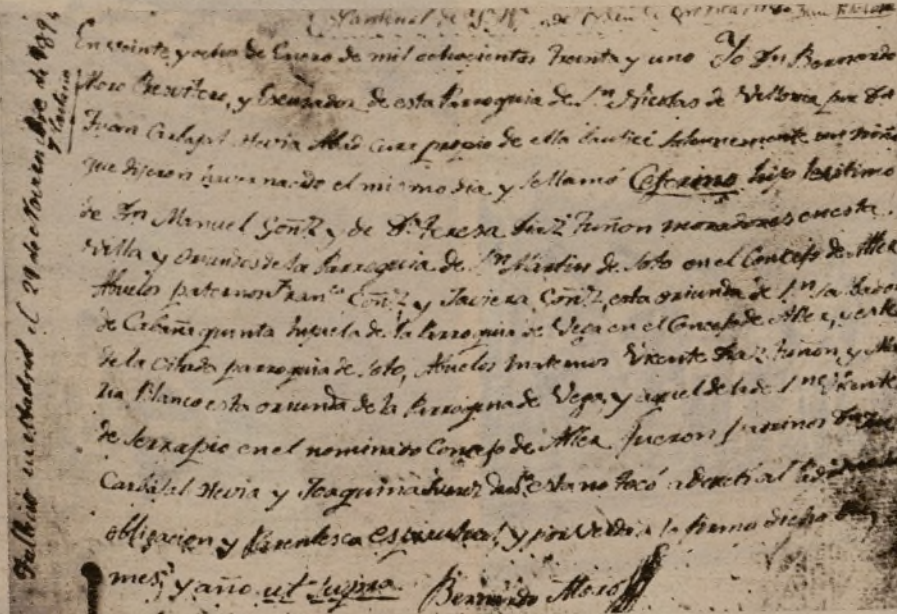 Cardenal de
En veinte y ocho de Enero de mil ochocientos treinta y uno Yo Dn Bernardo
Moro Presvitero, y Escusador de esta Parroquia de Sn Nicolas de Villoria por Dn
Juan Carbajal Hevia Abad Cura propio de ella bauticé solemnemente un niño
que dijeron haver nacido el mismo dia y se llamó Ceferino hijo lexitimo
de Dn Manuel Gonz y de Da Teresa Diaz Tuñon moradores en esta
Villa y oriundos de la Parroquia de Sn Martin de Soto en el Concejo de Aller
Abuelos paternos Franco Gonz y Javiera Gonz, esta oriunda de Sn Salbador
de Cabañaquinta hijuela de la Parroquia de Vega en el Concejo de Aller, y este
de la citada parroquia de Soto, Abuelos maternos Vicente Diaz Tuñon y Ma
ria Blanco esta oriunda de la Parroquia de Vega, y aquel de la de Sn Vicente
de Serrapio en el nominado Concejo de Aller fueron Padrinos Dn Juan
Carbajal Hevia y Joaquina esta no tocó adverti al Padrino la
obligacion y Parentesco espiritual y por verdad la firmo dicho dia
mes, y año ut supra Bernardo Moro
Falleció en Madrid el 29 de Noviembre de 1894
y Cardenal